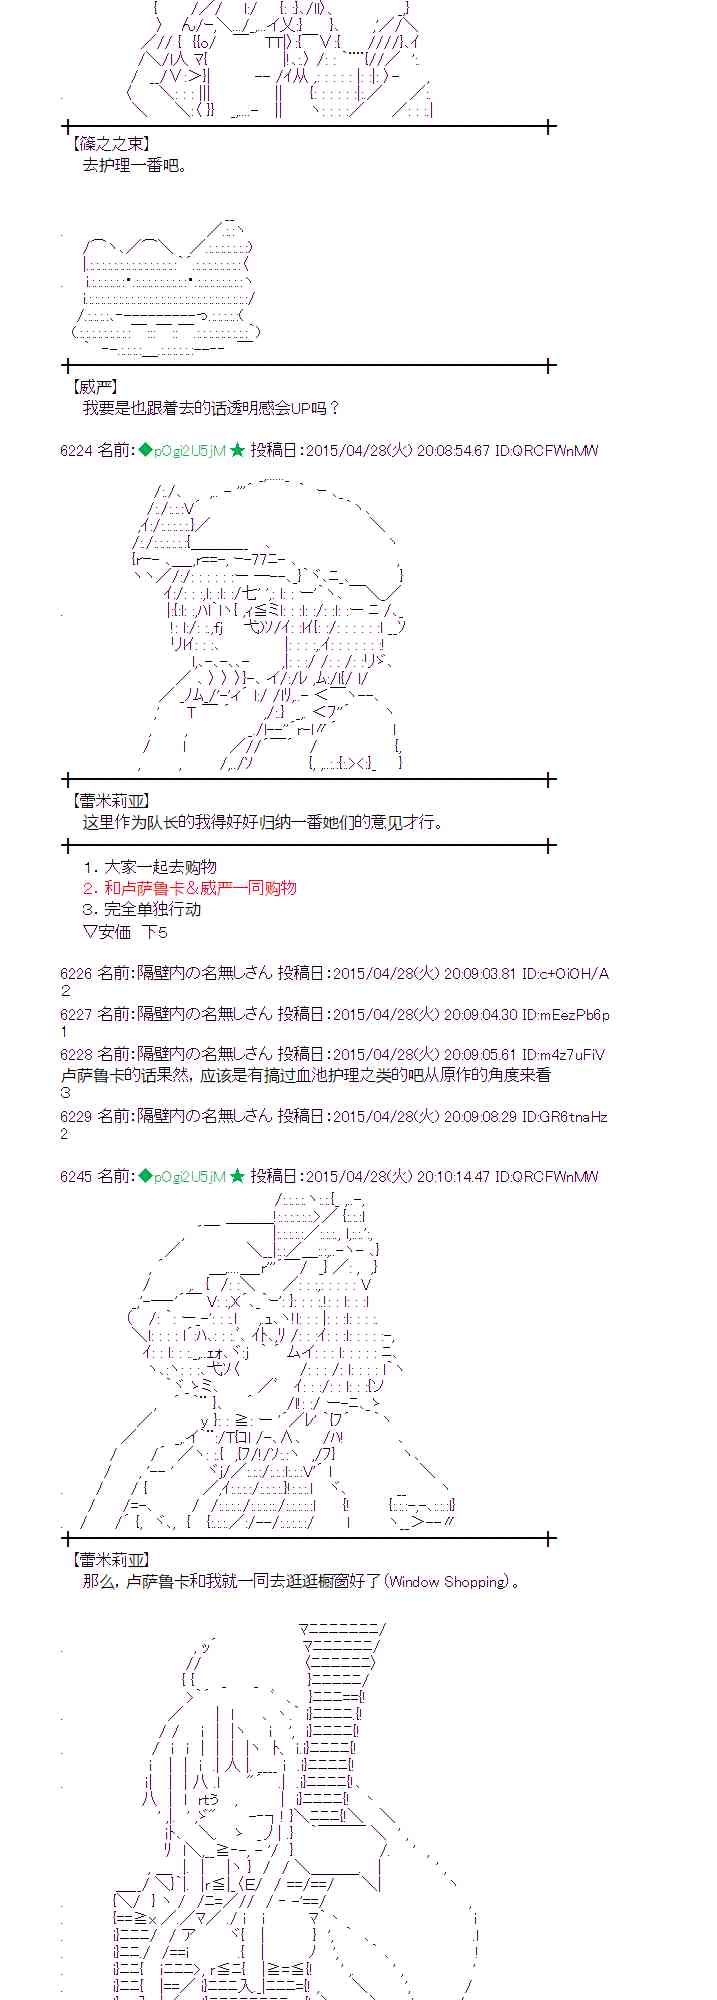 【篠之之束】
去护理一番吧。
【威严】
我要是也跟着去的话透明感会UP吗？
6224 名前：◆pOgi2U5jM ★ 投稿日：2015/04/28(火) 20:08:54.67 ID:QRCFWnMW
【蕾米莉亚】
这里作为队长的我得好好归纳一番她们的意见才行。
１．大家一起去购物
２．和卢萨鲁卡＆威严一同购物
３．完全单独行动
▽安価　下５
6226 名前：隔壁内の名無しさん 投稿日：2015/04/28(火) 20:09:03.81 ID:c+OiOH/A
２
6227 名前：隔壁内の名無しさん 投稿日：2015/04/28(火) 20:09:04.30 ID:mEezPb6p
1
6228 名前：隔壁内の名無しさん 投稿日：2015/04/28(火) 20:09:05.61 ID:m4z7uFiV
卢萨鲁卡的话果然，应该是有搞过血池护理之类的吧从原作的角度来看
３
6229 名前：隔壁内の名無しさん 投稿日：2015/04/28(火) 20:09:08.29 ID:GR6tnaHz
2
6245 名前：◆pOgi2U5jM ★ 投稿日：2015/04/28(火) 20:10:14.47 ID:QRCFWnMW
【蕾米莉亚】
那么，卢萨鲁卡和我就一同去逛逛橱窗好了（Window Shopping）。